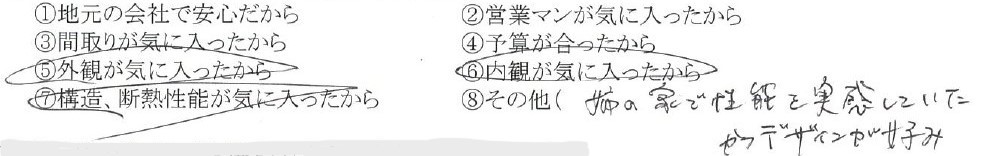 ①地元の会社で安心だから ②営業マンが気に入ったから
③間取りが気に入ったから ④予算が合ったから
⑤外観が気に入ったから ⑥内観が気に入ったから
⑦構造、断熱性能が気に入ったから ⑧その他( 姉の家で性能を実感していた
かつデザインが好み